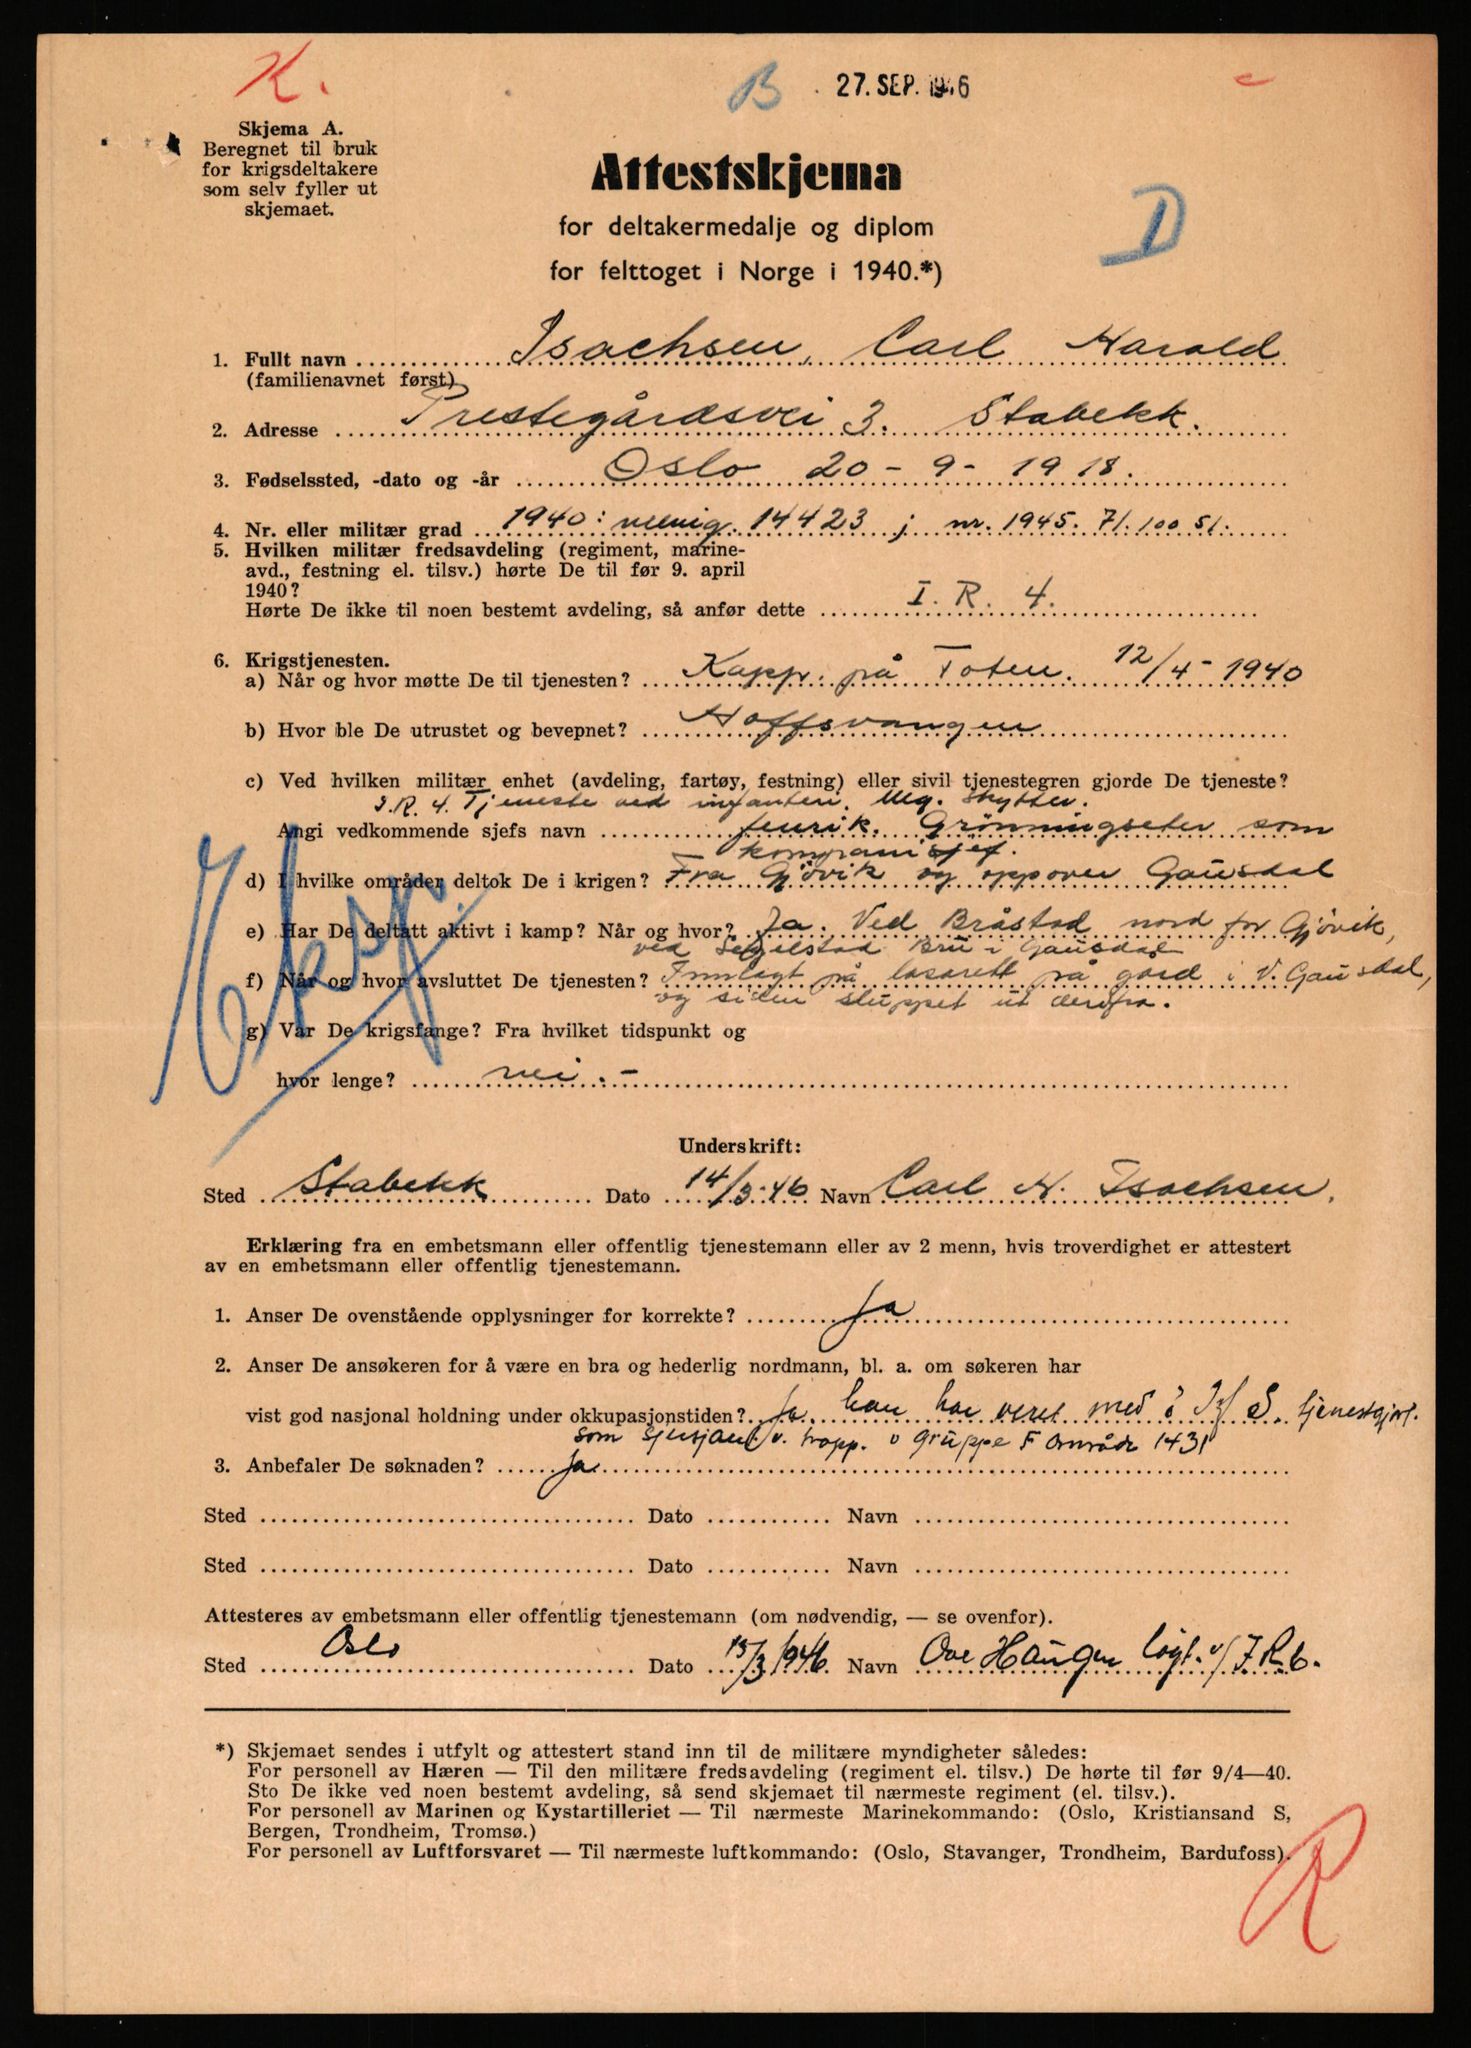 K.
B
27. SEP. 1946
Skjema A.
Beregnet til bruk
for krigsdeltakere
som selv fyller ut
skjemaet.
Attestskjema
for deltakermedalje og diplom
for felttoget i Norge i 1940.*)
D
1. Fullt navn Isachsen, Carl Harald
(familienavnet først)
2. Adresse Prestegårdsvei 3. Stabekk.
3. Fødselssted, -dato og -år Oslo 20-9-1918.
4. Nr. eller militær grad 1940: menig. 14423 ; nr. 1945. 71.100 51.
5. Hvilken militær fredsavdeling (regiment, marine-
avd., festning el. tilsv.) hørte De til før 9. april
1940?
Hørte De ikke til noen bestemt avdeling, så anfør dette I. R. 4.
6. Krigstjenesten.
a) Når og hvor møtte De til tjenesten? Kapp. på Toten. 12/4-1940
b) Hvor ble De utrustet og bevepnet? Hoffsvangen
c) Ved hvilken militær enhet (avdeling, fartøy, festning) eller sivil tjenestegren gjorde De tjeneste?
I.R. 4. Tjeneste ved infanteri. Mg. skytter.
Angi vedkommende sjefs navn fenrik. Grønningseter som
kompanisjef.
d) I hvilke områder deltok De i krigen? Fra Gjøvik og oppover Gausdal
e) Har De deltatt aktivt i kamp? Når og hvor? Ja. Ved Bråstad nord for Gjøvik,
ved Segelstad Bru i Gausdal
f) Når og hvor avsluttet De tjenesten? Innlagt på lasarett på gård i V. Gausdal,
og siden sluppet ut derfra.
g) Var De krigsfange? Fra hvilket tidspunkt og
hvor lenge? nei.-
Eksp.
Underskrift:
Sted Stabekk Dato 14/3-46 Navn Carl H. Isachsen.
Erklæring fra en embetsmann eller offentlig tjenestemann eller av 2 menn, hvis troverdighet er attestert
av en embetsmann eller offentlig tjenestemann.
1. Anser De ovenstående opplysninger for korrekte? Ja
2. Anser De ansøkeren for å være en bra og hederlig nordmann, bl. a. om søkeren har
vist god nasjonal holdning under okkupasjonstiden? Ja. han har veret med i S. tjenestgjort.
som sjersjant v. tropp. v gruppe F område 1431
3. Anbefaler De søknaden? Ja
Sted Dato Navn
Sted Dato Navn
Attesteres av embetsmann eller offentlig tjenestemann (om nødvendig, — se ovenfor).
Sted Oslo Dato 15/3 1946. Navn Ove Haugen løgt. v/ I.R. 6.
*) Skjemaet sendes i utfylt og attestert stand inn til de militære myndigheter således:
For personell av Hæren — Til den militære fredsavdeling (regiment el. tilsv.) De hørte til før 9/4—40.
Sto De ikke ved noen bestemt avdeling, så send skjemaet til nærmeste regiment (el. tilsv.).
For personell av Marinen og Kystartilleriet — Til nærmeste Marinekommando: (Oslo, Kristiansand S,
Bergen, Trondheim, Tromsø.)
For personell av Luftforsvaret — Til nærmeste luftkommando: (Oslo, Stavanger, Trondheim, Bardufoss).
R